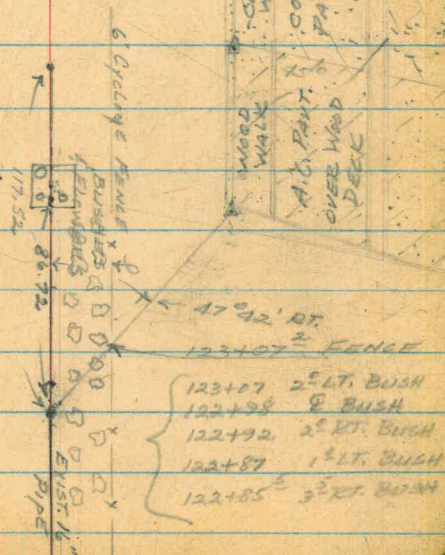 6' Cyclone FENCE
BUSHES
& FLOWERS
117.52
86.72
WOOD
WALK
A.C. PAVT.
OVER WOOD
DECK
47° 42' RT.
123+07² FENCE
123+07 2⁰ LT. BUSH
122+98 ⅊ BUSH
122+92 2⁰ RT. BUSH
122+87 1⁵ LT. BUSH
122+85⁵ 3⁵ RT. BUSH
EXIST. 16"
PIPE